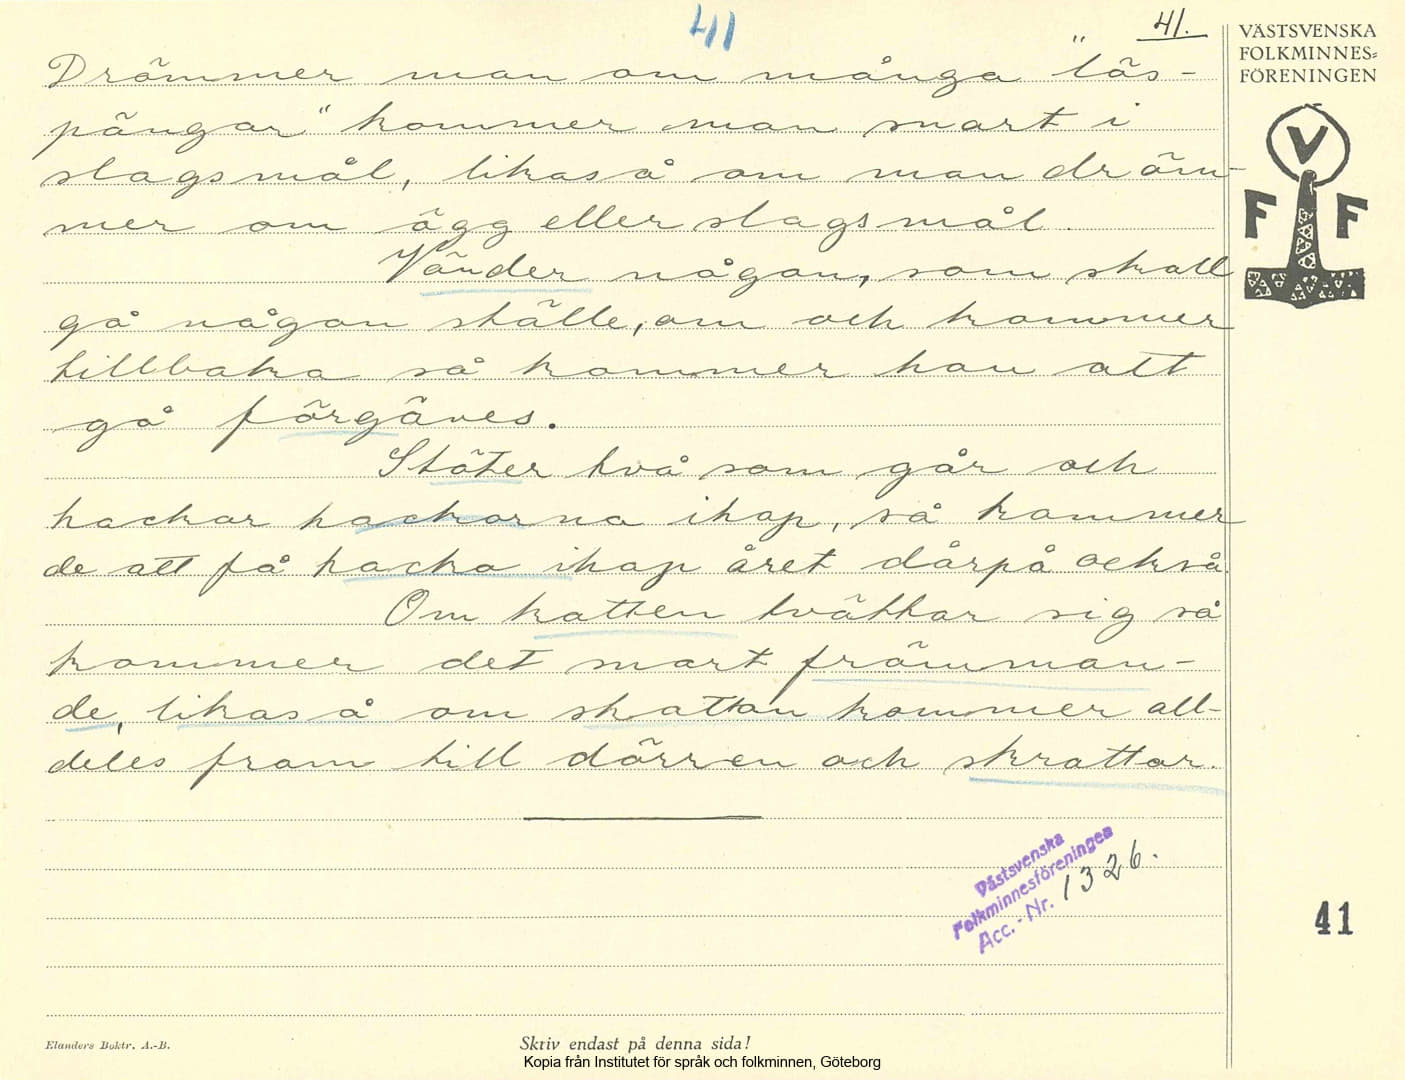 41
41.
VÄSTSVENSKA
FOLKMINNES=
FÖRENINGEN
V
F F
Drömmer man om många "lös-
pängar" kommer man snart i
slagsmål, likaså om man dröm-
mer om ägg eller slagsmål.
Vänder någon, som skall
gå någon ställe, om och kommer
tillbaka så kommer han att
gå förgäves.
Stöter två som går och
hackar hackorna ihop, så kommer
de att få hacka ihop året därpå också.
Om katten tvättar sig så
kommer det snart främman-
de, likaså om skattan kommer all-
deles fram till dörren och skrattar.
Västsvenska
Folkminnesföreningen
Acc.-Nr. 1326.
41
Elanders Boktr. A.-B.
Skriv endast på denna sida!
Kopia från Institutet för språk och folkminnen, Göteborg